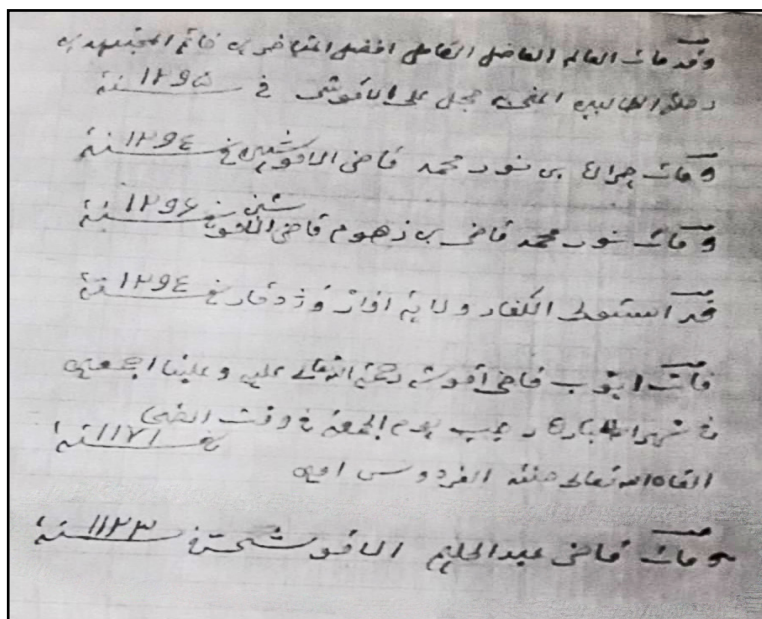 وقد مات العالم الفاضل الكامل افضل المتاخرين خاتم المجتهدين
الطالبين على الاقوشى فى سنة ١٢٩٥
ومات بن نور محمد قاضى الاقوشى فى سنة ١٢٩٤
ومات نور محمد قاضى بن قاضى الاقوشى فى سنة ١٢٩٦
قد استولى الكفار ولاية فى سنة ١٢٩٤
مات ايوب قاضى اقوشه رحمة الله تعالى عليه وعلينا اجمعين
فى شهر المبارك رجب يوم الجمعة فى وقت الضحى
فى سنة ١١٧١
الله تعالى جنة الفردوس امين
ومات قاضى عبدالحليم سنة ١١٢٣